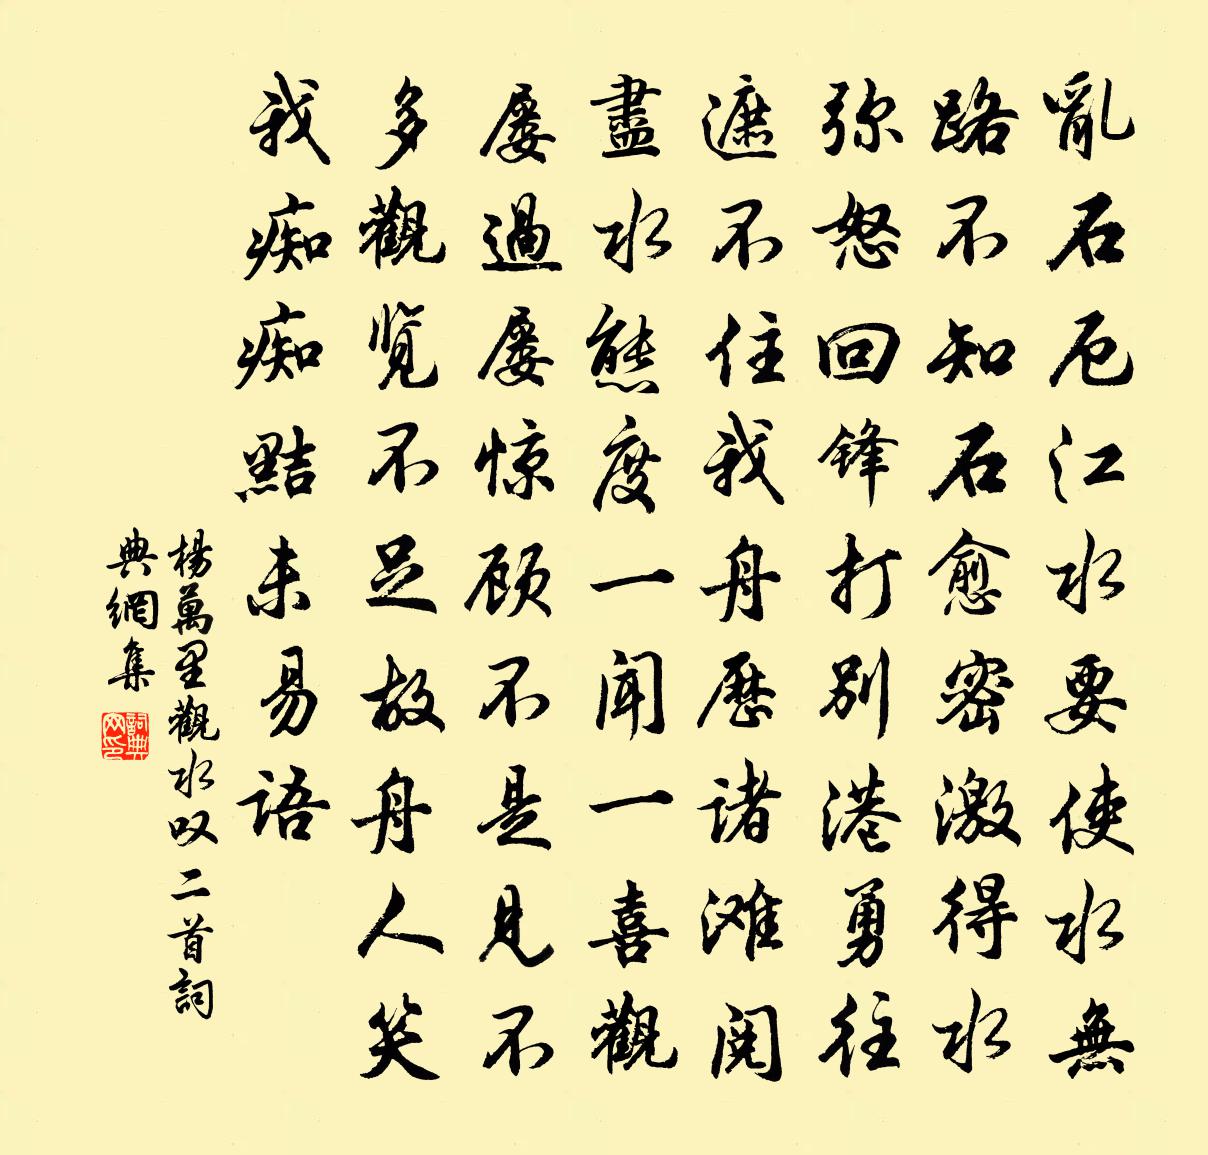 亂石厄江水要使水無
路不知石愈密激得水
弥怒回锋打别港勇往
遮不住我舟歷诸滩阅
盡水態度一闻一喜觀
屡過屡惊顾不是見不
多觀览不足故舟人笑
我痴痴黠未易语
楊萬里觀水叹二首詞
典網集
詞典
网印